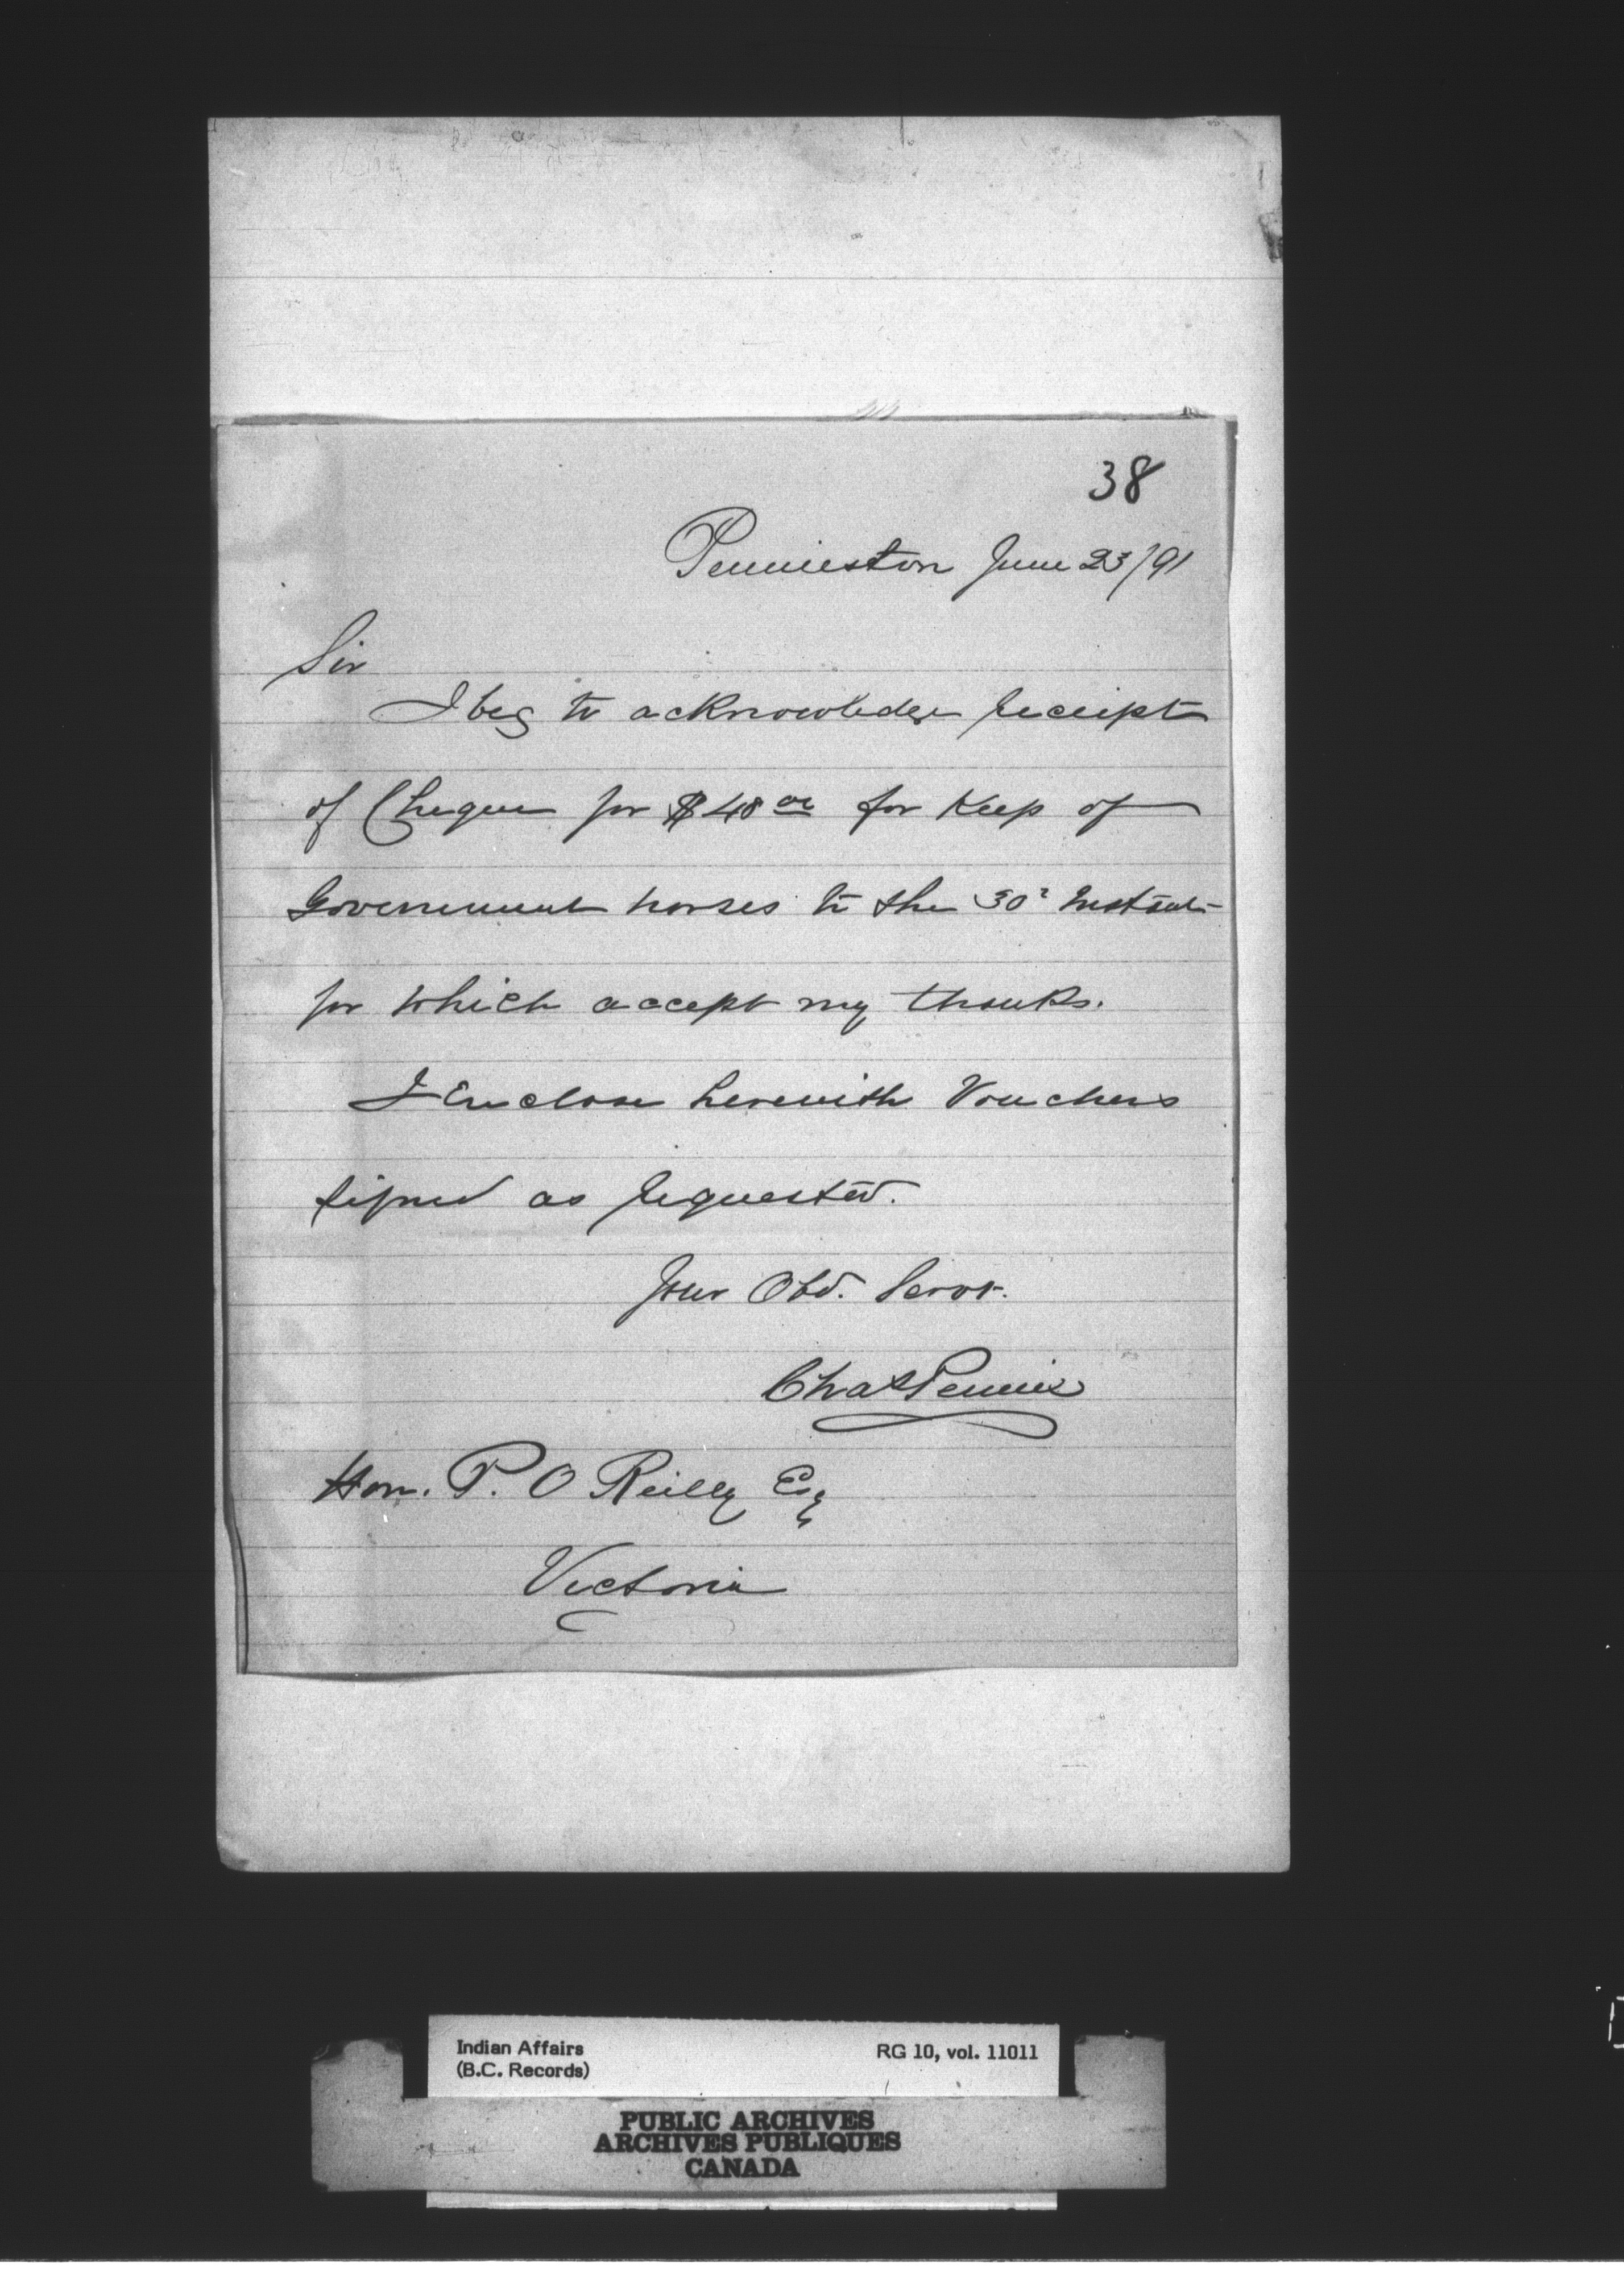 38
Pennieston June 23/91
Sir
I beg to acknowledge receipt
of Cheque for $48 00 for Keep of
Government horses to the 30th Instant
for which accept my thanks.
I Enclose herewith Vouchers
signed as requested.
Your Obd. Servt.
Chas Pennie
Hon. P. O Reilly Esq
Victoria
Indian Affairs
(B.C. Records)
RG 10, vol. 11011
PUBLIC ARCHIVES
ARCHIVES PUBLIQUES
CANADA